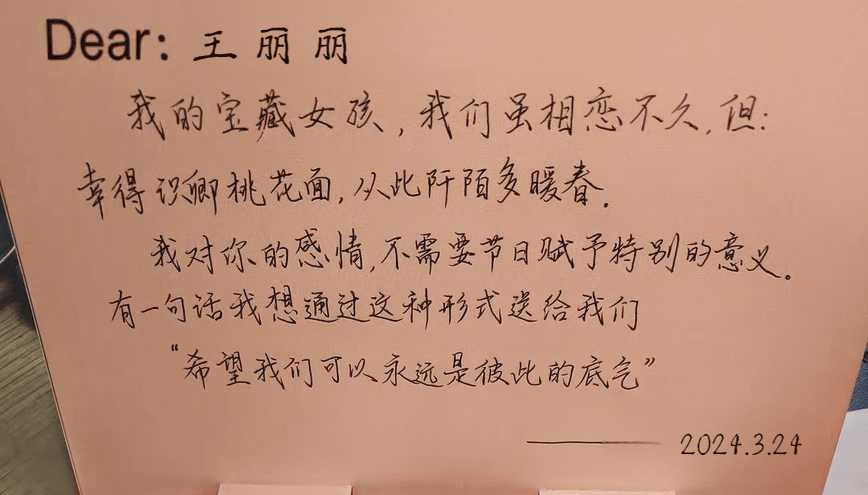 Dear: 王丽丽
我的宝藏女孩,我们虽相恋不久,但:
幸得识卿桃花面,从此阡陌多暖春。
我对你的感情,不需要节日赋予特别的意义。
有一句话我想通过这种形式送给我们
“希望我们可以永远是彼此的底气”
——2024.3.24